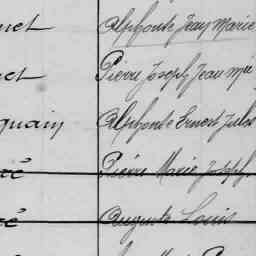 Alphonse Jean Marie
et Pierre Joseph Jean Mie
quain Alphonse Ernest Jules
ré Pierre Marie Joseph
ré Auguste Louis